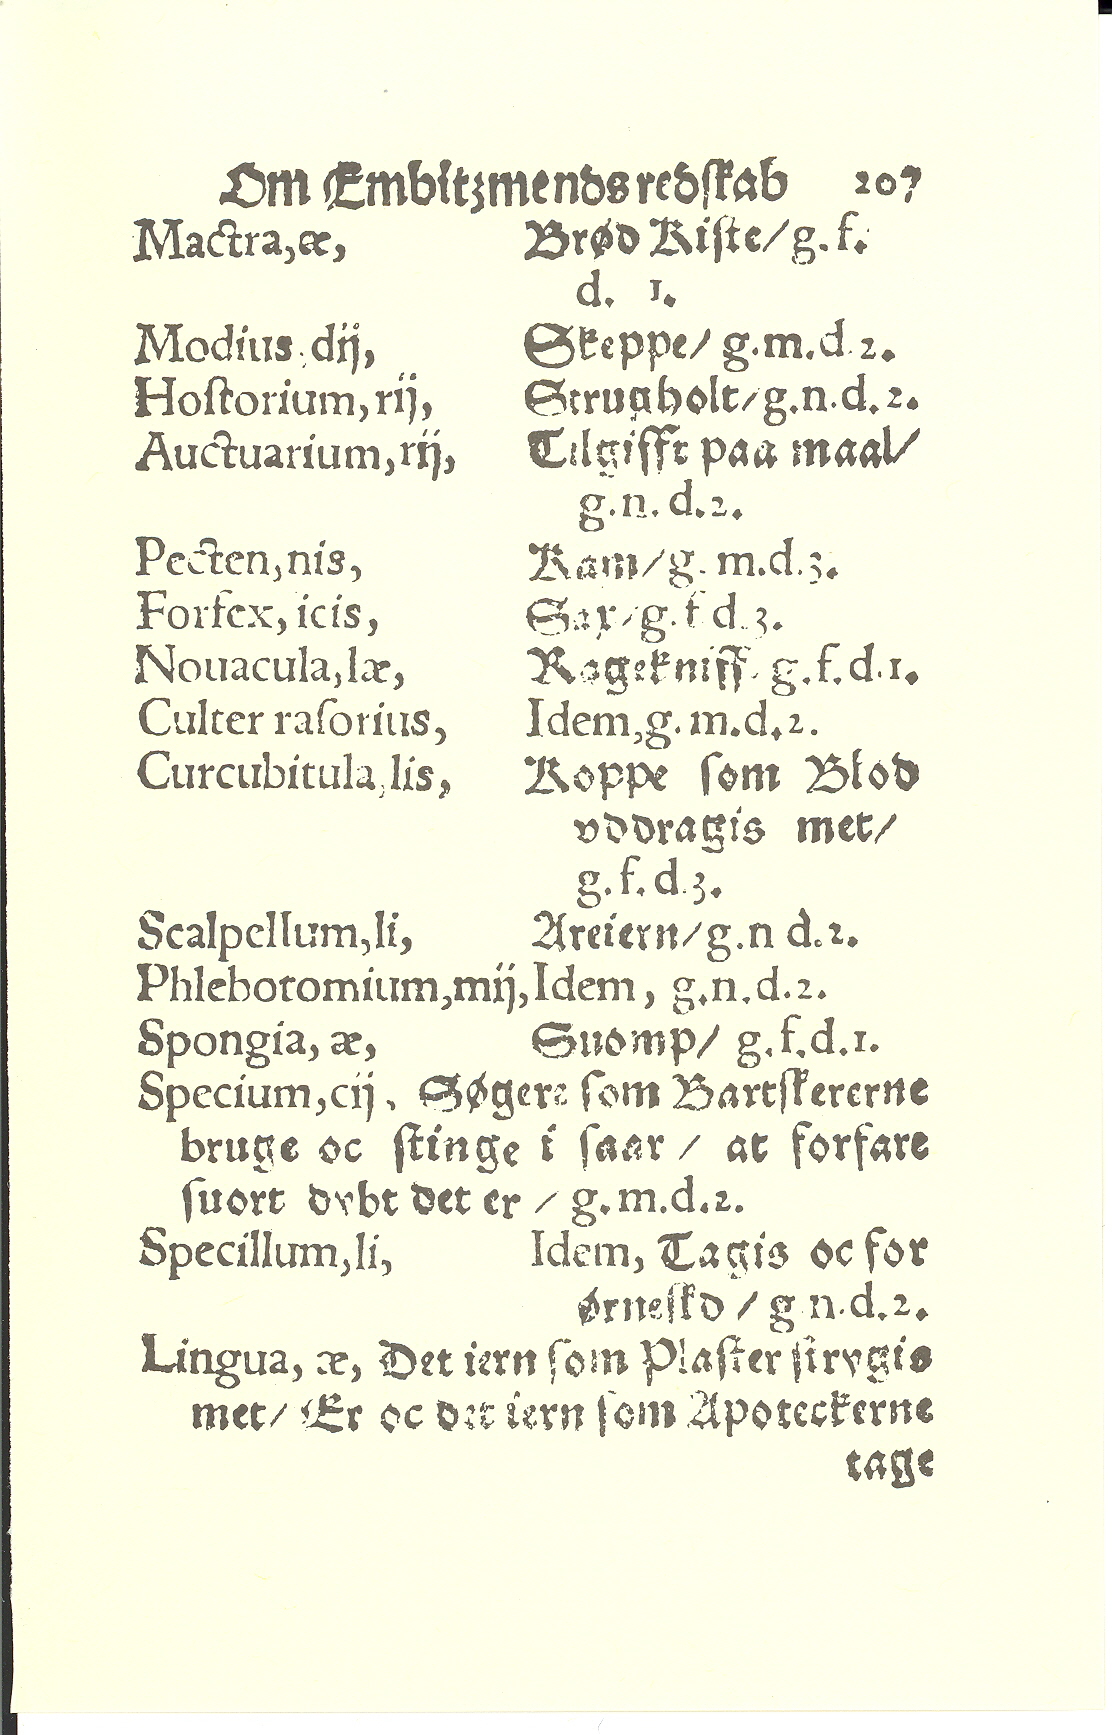 Om Embitzmends redſkab 207
Mactra,æ, Brød Kiſte/g.f.
d. 1.
Modius,dij, Skeppe/ g.m.d.2.
Hoſtorium,rij, Strugholt/g.n.d.2.
Auctuarium,rij, Tilgifft paa maal/
g.n.d.2.
Pecten,nis, Kam/g.m.d.3.
Forfex,icis, Sax/g.f.d.3.
Nouacula,læ, Ragekniff g.f.d.1.
Culter raſorius, Idem,g.m.d.2.
Curcubitula,lis, Koppe ſom Blod
vddragis met/
g.f.d.3.
Scalpellum,li, Areiern/g.n d.2.
Phlebotomium,mij,Idem, g.n.d.2.
Spongia, æ, Suomp/ g.f.d.1.
Specium,cij, Søgere ſom Bartſkererne
bruge oc ſtinge i ſaar / at forfare
ſuort dybt det er / g.m.d.2.
Specillum,li, Idem, Tagis oc for
Ørneſkd / g n.d.2.
Lingua, æ, Det iern ſom Plaſter ſtrygis
met/ Er oc det iern ſom Apoteckerne
tage